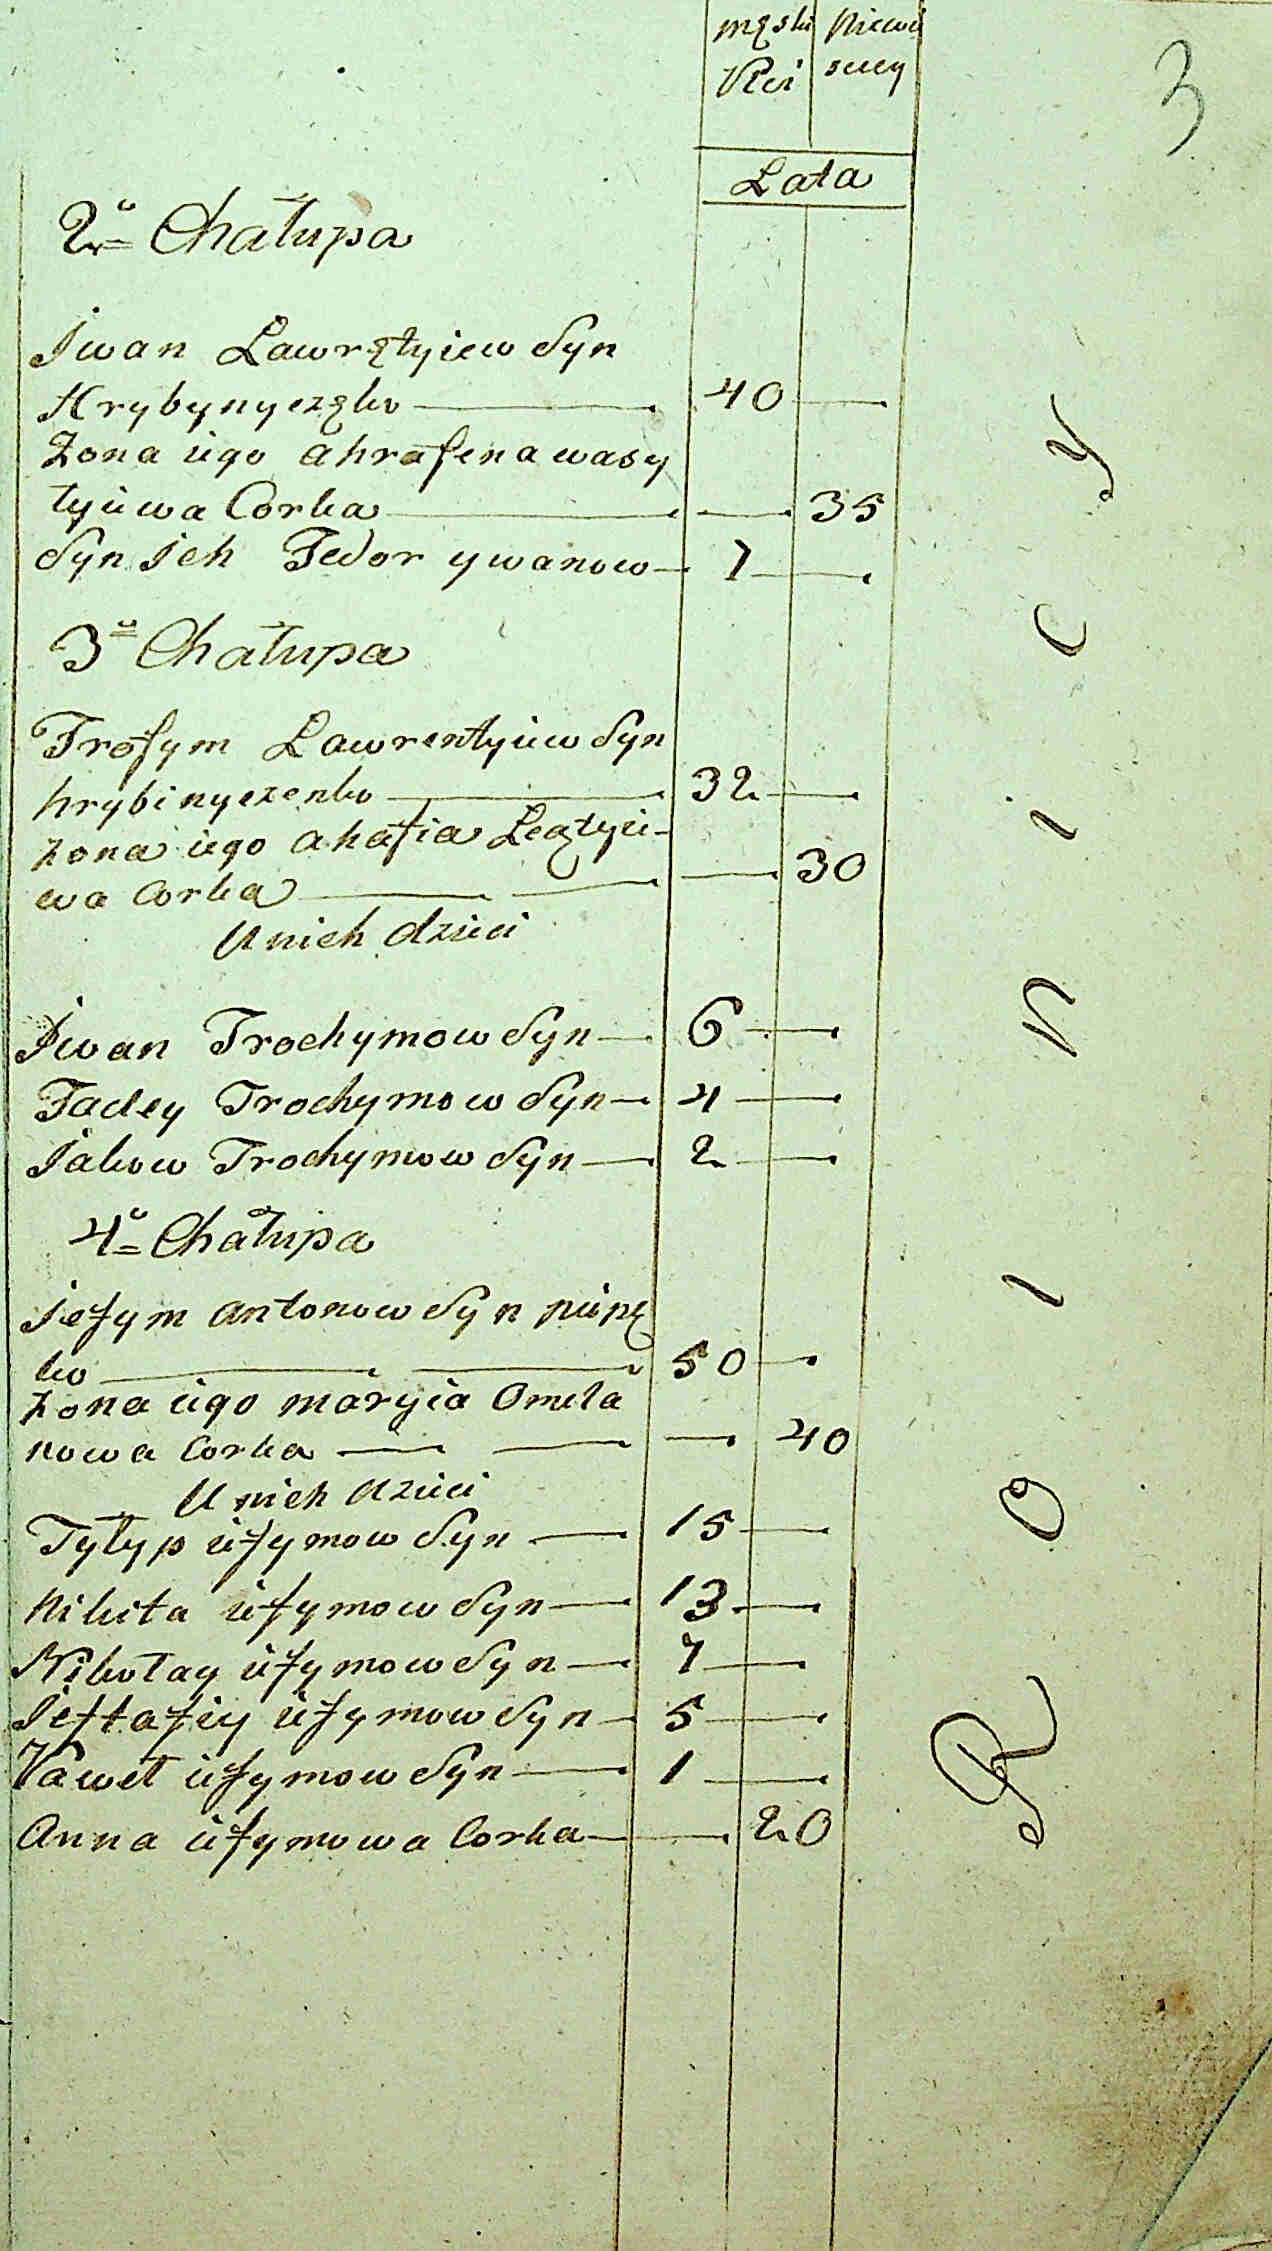 męski Niewi
Płci sciey
3
Lata
2a Chałupa
Iwan Ławrętyiew Syn
Hrybynyczęko 40
Żona iego ahrafena wasy
łyiewa Corka 35
Syn ich Fedor ywanow 7
3a Chałupa
Trofym Ławrentyiew Syn
hrybinyczenko 32
żona iego ahafia Leątyie-
wa Corka 30
U nich dzieci
Iwan Trochymow Syn 6
Fadey Trochymow Syn 4
Iakow Trochymow Syn 2
4a Chałupa
Iefym antonow Syn piipę
ko 50
żona iego maryia Omela
nowa Corka 40
U nich dzieci
Fyłyp iefymow Syn 15
Nikita iefymow Syn 13
Nikołay iefymow Syn 7
Ieftafiy iefymow Syn 5
Paweł iefymow Syn 1
Anna iefymowa Corka 20
Rolnicy